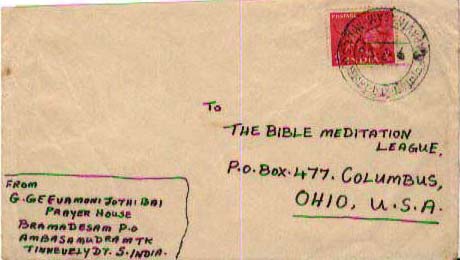 POSTAGE
INDIA
TO
THE BIBLE MEDITATION
LEAGUE.
P.O. BOX. 477. COLUMBUS,
OHIO, U.S.A.
FROM
G. GEEVAMONI JOTHIBAI
PRAYER HOUSE
BRAMADESAM P.O
AMBASAMUDRAM TK
TINNEVELY DT. S. INDIA.